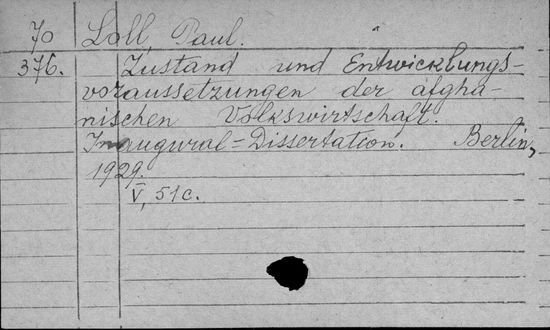 70 Loll, Paul.
376. Zustand und Entwicklungs-
voraussetzungen der afgha-
nischen Volkswirtschaft.
Inaugural-Dissertation. Berlin,
1929.
V, 51 c.